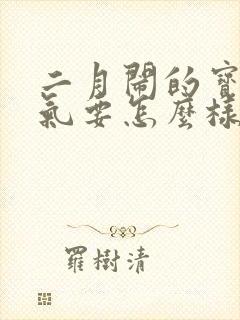 二月開的寶
氣要怎麼樣
羅樹清